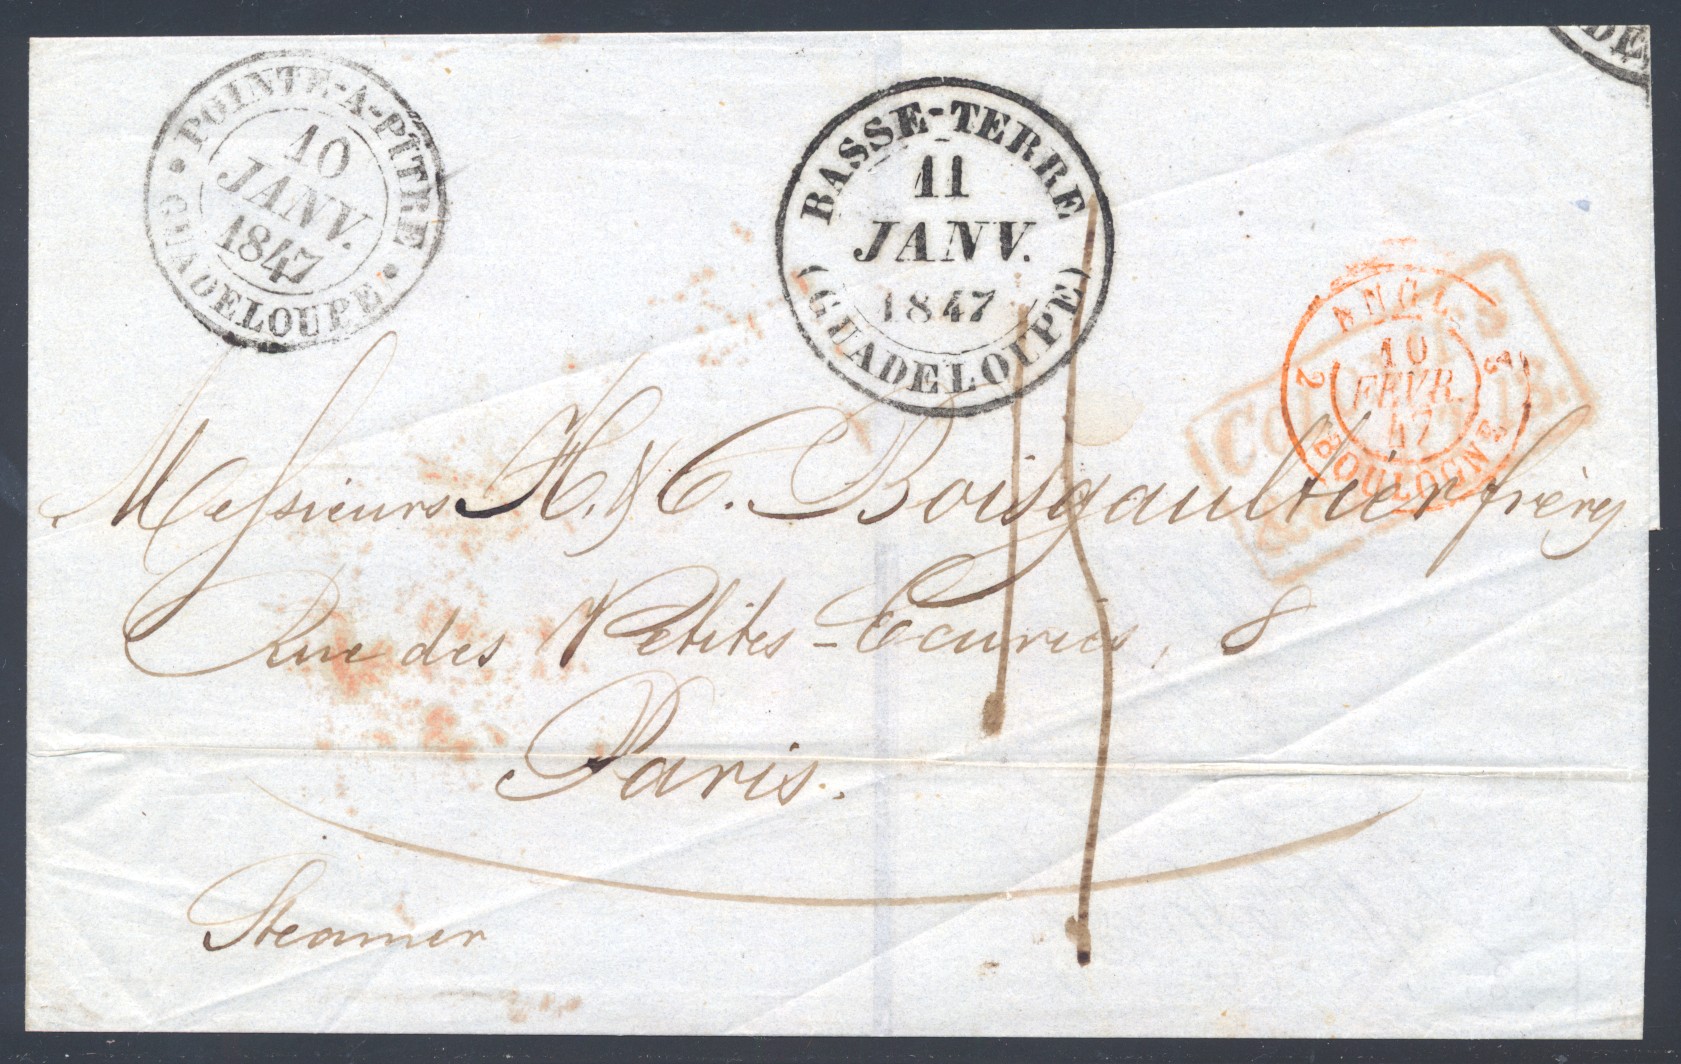 POINTE-A-PITRE
10
JANV.
1847
GUADELOUPE
BASSE-TERRE
11
JANV.
1847
(GUADELOUPE)
DE
ANGL.
2
10
FEVR.
47
2
BOULOGNE
COLONIES
Messieurs H. & C. Boisgaultier frères
Rue des Petites-Ecuries, 8
Paris.
Steamer